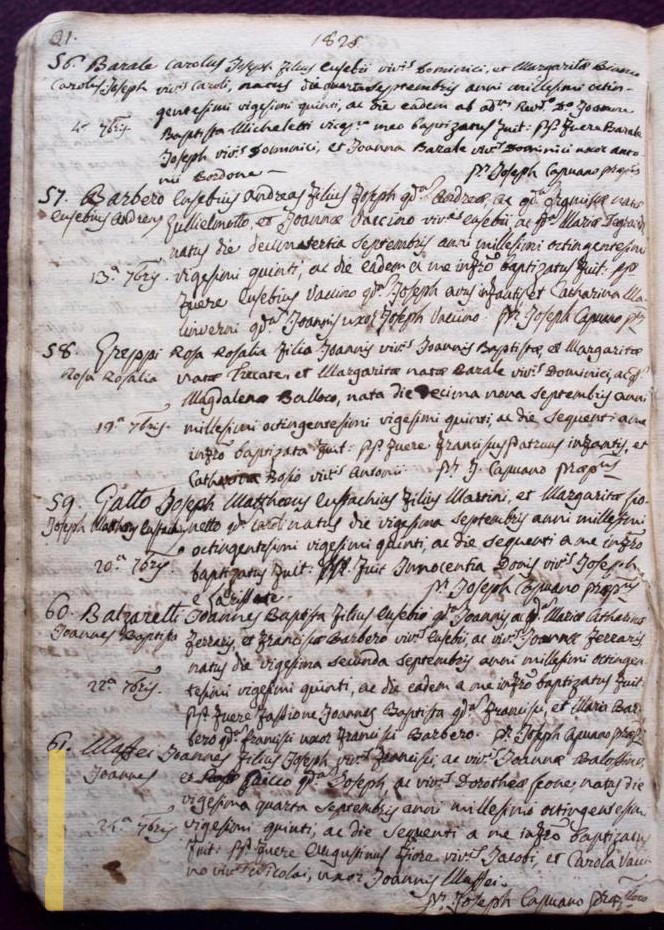 21.
1825
56. Barale Carolus Joseph filius Eusebii viv.s Dominici, et Margaritæ Bianco
Carolus Joseph viv.s Caroli, natus die quarta septembris anni millesimi octin-
gentesimi vigesimi quinti, ac die eadem ab ad.m Rev.do Joanne
4. 7bris Baptista Micheletti meo baptizatus fuit: pp.i fuere Barale
Joseph viv.s Dominici, et Joanna Barale viv.s Dominici uxor Anto
nii Bordona — pr. Joseph Capuano
57. Barbero Eusebius Andreas filius Joseph qd.m Andreæ, ac qd.m
Eusebius Andreas Gullielmotto, et Joannæ Vaccino viv.s Eusebii, ac Mariæ
natus die decimatertia septembris anni millesimi octingentesimi
13.a 7bris. vigesimi quinti, ac die eadem a me infro baptizatus fuit: pp.i
fuere Eusebius Vaccino qd.m Joseph avus infantis, et Catharina
qd.m Joannis uxor Joseph Vaccino. pr. Joseph Capuano
58. Greppi Rosa Rosalia filia Joannis viv.s Joannis Baptistæ, et Margaritæ
Rosa Rosalia natæ et Margaritæ natæ Barale viv.s Dominici, ac qd.m
Magdalenæ Balloco, nata die Decima nona septembris anni
19.a 7bris. millesimi octingentesimi vigesimi quinti, ac die sequenti a me
infro baptizata fuit: pp.i fuere Franciscus Patruus infantis, et
Catharina Bosio viv.s Antonii pr. J. Capuano præp.us
59. Gatto Joseph Matthæus Eustachius filius Martini, et Margaritæ
Joseph Matthæus Eustachius netto natus die vigesima septembris anni millesimi
octingentesimi vigesimi quinti, ac die sequenti a me infro
20.a 7bris. baptizatus fuit: fuit Innocentia Donis viv.s Joseph
pr. Joseph Capuano præp.us
60. Balzaretti Joannes Baptista filius Eusebio qd.m Joannis ac qd.m Mariæ Catharinæ
Joannes Baptista Ferraris, et Franciscæ Barbero viv.s Eusebii, ac viv.s Joannæ Ferraris
natus die vigesima secunda septembris anni millesimi octingen-
22.a 7bris. tesimi vigesimi quinti, ac die eadem a me infro baptizatus fuit.
pp.i fuere Fassione Joannes Baptista qd.m Francisci, et Maria Bar-
bero qd.m Francisci uxor Francisci Barbero. pr. Joseph Capuano
61. Maffei Joannes filius Joseph viv.s Francisci, ac viv.s Joannæ
Joannes et Joseph, ac viv.s Dorotheæ Leone, natus die
vigesima quarta septembris anni millesimo octingentesimi
24.a 7bris vigesimi quinti, ac die sequenti a me infro baptizatus
fuit: pp.i fuere Augustinus Fiore viv.s Jacobi, et Carola Vacci
no viv.s Nicolai, uxor Joannis Maffei.
pr. Joseph Capuano